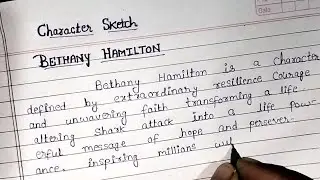 Date
Character Sketch
BETHANY HAMILTON
Bethany Hamilton is a character
defined by extraordinary resilience Courage
and unwavering faith transforming a life
altering shark attack into a life pow-
erful message of hope and persever-
ance. inspiring millions